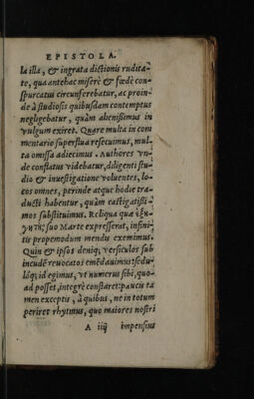 EPISTOLA.
la illa, & ingrata dictionis rudita-
te, qua antehac miserè & fœdè con-
spurcatus circunferebatur, ac proin-
de à studiosis quibusdam contemptus
negligebatur, quàm abenissimus in
vulgum exiret. Quare multa in com
mentario superflua resecuimus, mul-
ta omissa adiecimus. Authores vn-
de conflatus videbatur, diligenti stu-
dio & inuestigatione voluentes, lo-
cos omnes, perinde atque hodie tra-
ducti habentur, quàm castigatißi-
mos substituimus. Reliqua quæ ἐξη-
γητὴς suo Marte expresserat, infini-
tis propemodum mendis exemimus.
Quin & ipsos deniq; versiculos sub
incudē reuocatos emēdauimus: sedu-
lóq; id egimus, vt numerus sibi, quo-
ad posset, integrè constaret: paucis ta
men exceptis, à quibus, ne in totum
periret rhytmus, quo maiores nostri
A iiij impensius